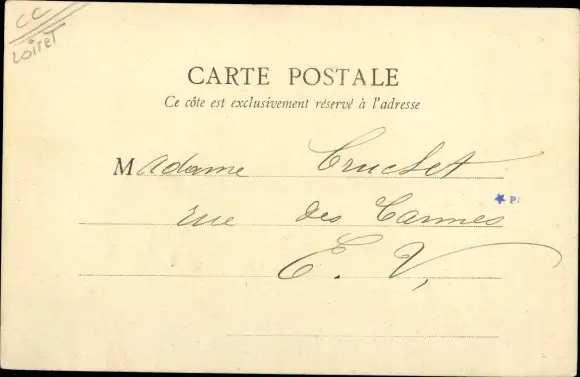 CC
LOIRET
CARTE POSTALE
Ce côte est exclusivement réservé à l'adresse
Madame Cruchet
rue des Carmes
E. V.